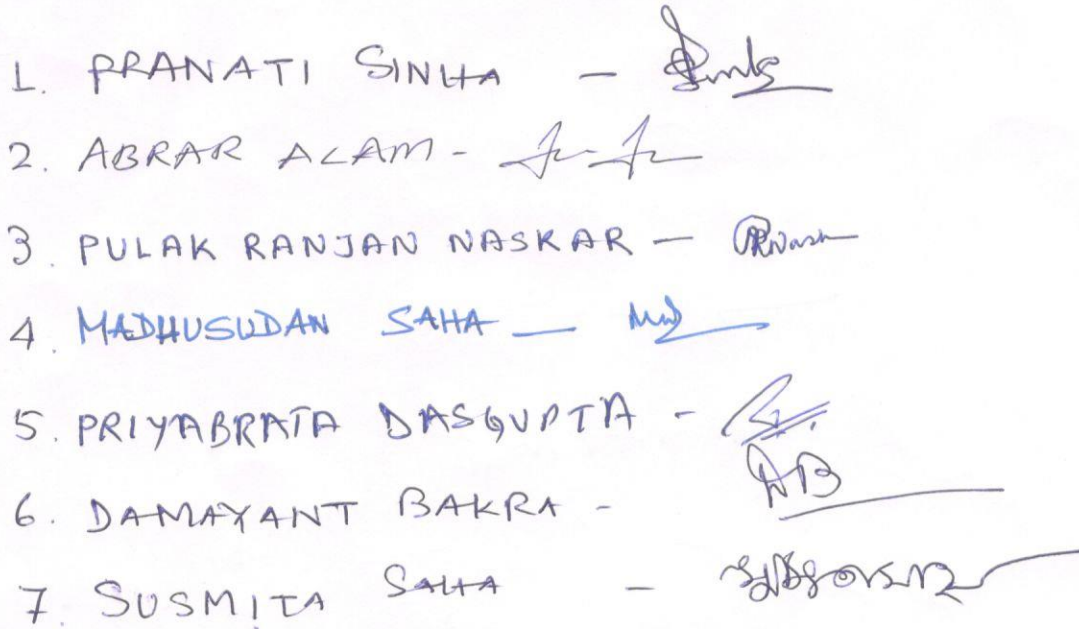 1. PRANATI SINHA -
2. ABRAR ALAM -
3. PULAK RANJAN NASKAR -
4. MADHUSUDAN SAHA -
5. PRIYABRATA DASGUPTA -
6. DAMAYANT BAKRA - DB
7. SUSMITA SAHA -